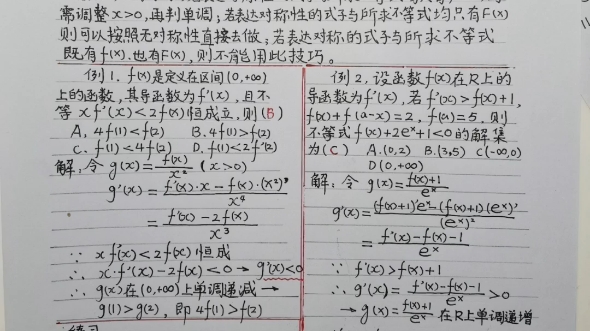 需调整x>0,再判单调;若表达对称性的式子与所求不等式均只有F(x)
则可以按照无对称性直接去做;若表达对称的式子与所求不等式
既有f(x).也有F(x),则不能用此技巧。
例1.f(x)是定义在区间(0,+∞)
上的函数,其导函数为f'(x),且不
等 xf'(x)<2f(x)恒成立,则(B)
A、4f(1)<f(2) B.4f(1)>f(2)
C.f(1)<4f(2) D.f(1)<2f'(2)
解:令 g(x)=f(x)/x² (x>0)
g'(x)=f'(x)·x-f(x)·(x²)'/x⁴
=f'(x)-2f(x)/x³
∵ xf'(x)<2f(x)恒成
∴ x·f'(x)-2f(x)<0→g'(x)<0
∴ g(x)在(0,+∞)上单调递减→
g(1)>g(2),即4f(1)>f(2)
例2.设函数f(x)在R上的
导函数为f'(x),若f'(x)>f(x)+1,
f(x)+f(a-x)=2,f(a)=5,则
不等式f(x)+2eˣ+1<0的解集
为(C) A.(0,2) B.(3,5) C(-∞,0)
D(0,+∞)
解:令 g(x)=f(x)+1/eˣ
g'(x)=(f(x)+1)'eˣ-(f(x)+1)(eˣ)'/(eˣ)²
=f'(x)-f(x)-1/eˣ
∵ f'(x)>f(x)+1
∴ g'(x)=f'(x)-f(x)-1/eˣ>0
→g(x)=f(x)+1/eˣ在R上单调递增